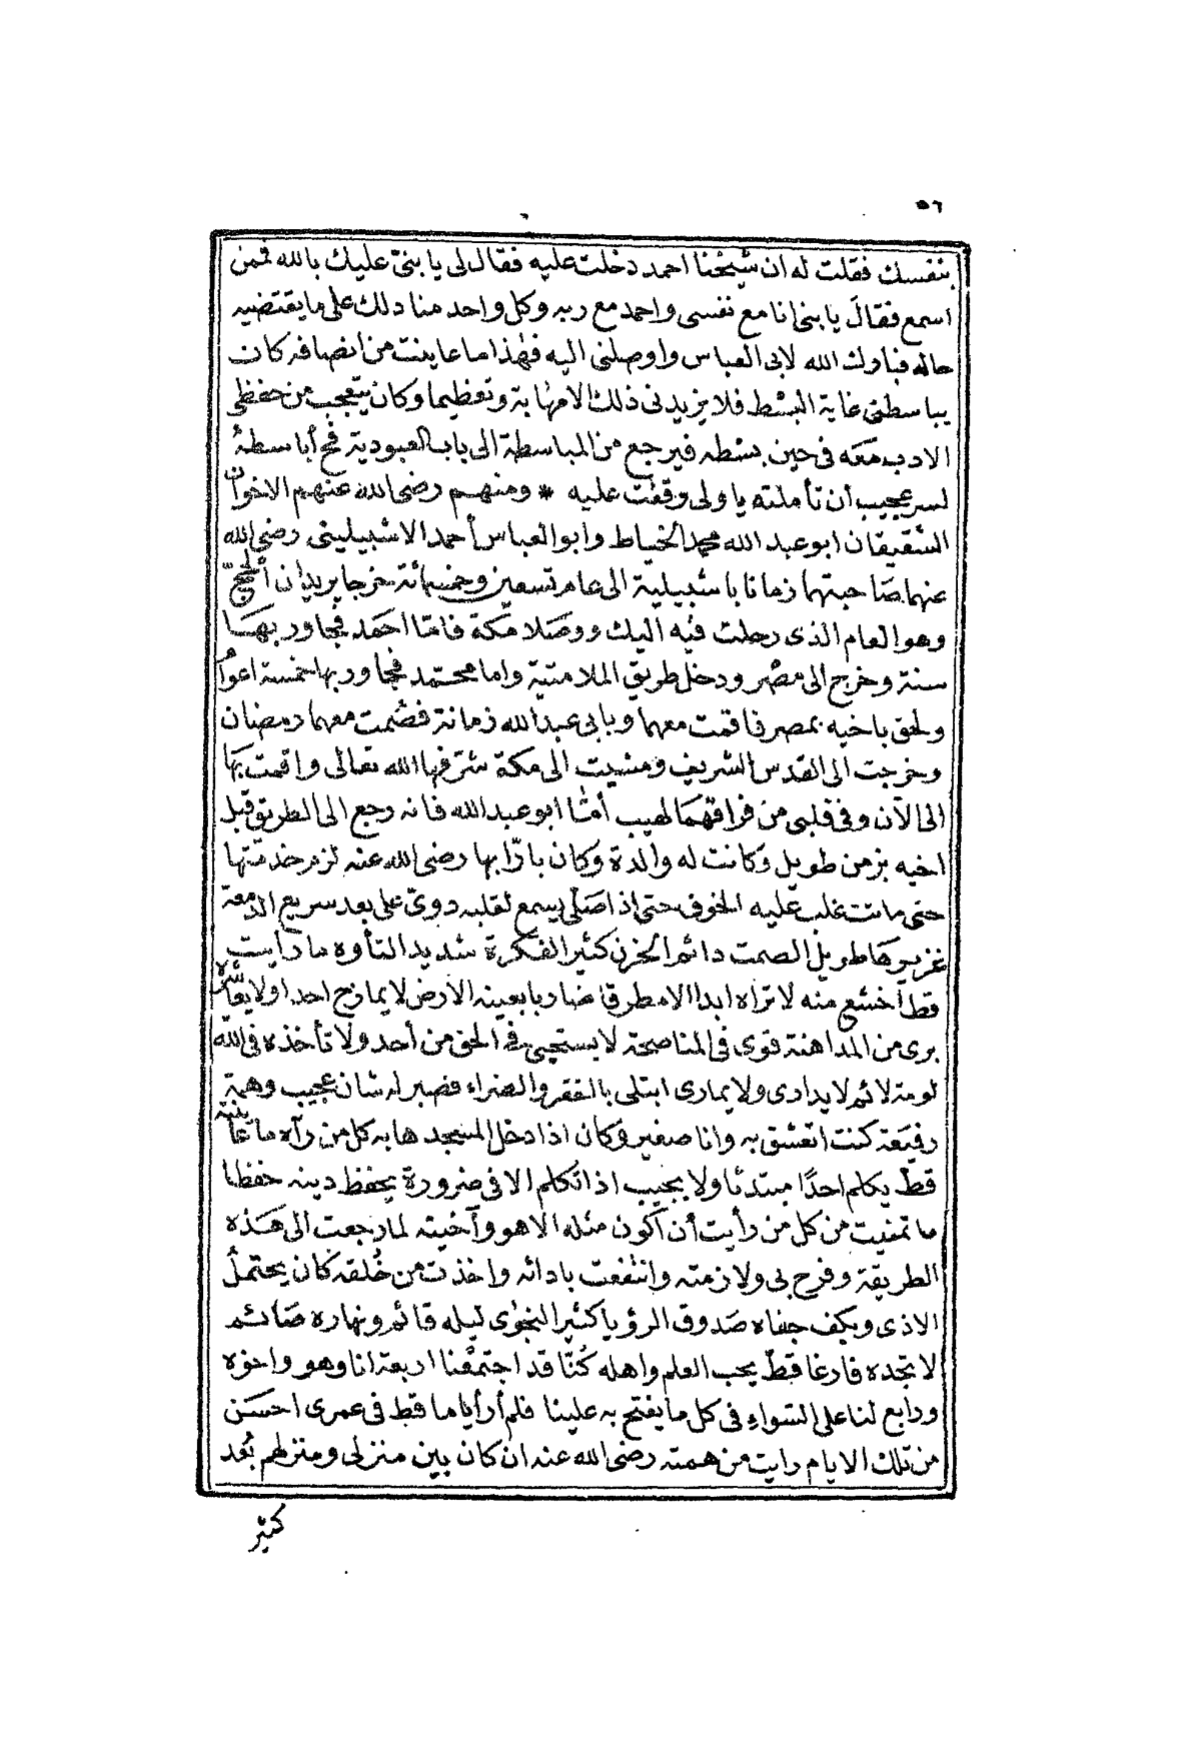 ٥٦
بنفسك فقلت له ان شيخنا احمد دخلت عليه فقال لى يا بنىّ عليك بالله فممن
اسمع فقال يا بنى انا مع نفسى واحمد مع ربه وكل واحد منا دلك على ما يقتضيه
حاله فبارك الله لابى العباس واوصلنى اليه فهذا ما عاينت من انصافه كان
يباسطنى غاية البسط فلا يزيدنى ذلك الا مهابة وتعظيما وكان يتعجب من حفظى
الادب معه فى حين بسطه فيرجع من المباسطة الى باب العبودية فح أباسطه
لسر عجيب أن تأملته يا ولى وقفت عليه * ومنهم رضى الله عنهم الاخوان
الشقيقان ابو عبد الله محمد الخياط وابو العباس أحمد الاشبيلينى رضى الله
عنهما صاحبتهما زمانا باشبيلية الى عام تسعين وخمسمائة خرجا يريدان الحج
وهو العام الذى رحلت فيه اليك ووصلا مكة فامّا احمد فجاور بها
سنة وخرج الى مصر ودخل طريق الملامتية واما محمد فجاور بها خمسة اعوام
ولحق باخيه بمصر فاقمت معهما وبابى عبد الله زمانة فصمت معهما رمضان
وخرجت الى القدس الشريف ومشيت الى مكة شرّفها الله تعالى واقمت بها
الى الآن وفى قلبى من فراقهما لهيب أمّا ابو عبد الله فانه رجع الى الطريق قبل
اخيه بزمن طويل وكانت له والدة وكان بارّا بها رضى الله عنه لزم خدمتها
حتى ماتت غلب عليه الخوف حتى اذا صلى يسمع لقلبه دوىّ على بعد سريع الدمعة
غزيرها طويل الصمت دائم الحزن كثير الفكرة شديد التأوه ما رايت
قط أخشع منه لا تراه ابدا الا مطرقا ضاربا بعينه الارض لا يمازح احدا ولا يعاشره
برى من المداهنة قوى فى المناصحة لا يستحيى فى الحق من أحد ولا تأخذه فى الله
لومة لائم لا يدارى ولا يمارى ابتلى بالفقر والضراء فصبر له شان عجيب وهمة
رفيعة كنت اتعشق به وانا صغير وكان اذا دخل المسجد هابه كل من رآه ما عاينته
قطّ يكلم احدًا مبتدئا ولا يجيب اذا تكلم الا فى ضرورة يحفظ دينه حفظا
ما تمنيت من كل من رأيت أن أكون مثله الا هو وآخيته لما رجعت الى هذه
الطريقة وفرح بى ولازمته وانتفعت بادائه واخذت من خُلقه كان يحتمل
الاذى ويكف جفاه صدوق الرؤيا كثير النجوى ليله قائم ونهاره صائم
لا تجده فارغا قطّ يحب العلم واهله كُنّا قد اجتمعنا اربعة انا وهو واخوه
ورابع لنا على السّواء فى كل ما يفتح به علينا فلم أر أياما قط فى عمرى احسن
من تلك الايام رايت من همته رضى الله عنه ان كان بين منزلى ومنزلهم بُعد
كثير